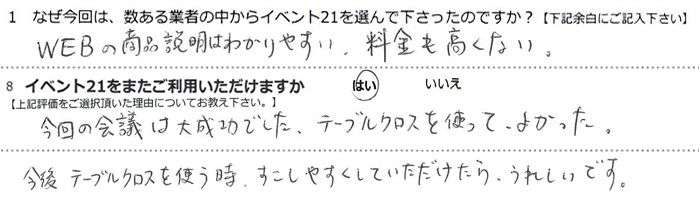 1 なぜ今回は、数ある業者の中からイベント21を選んで下さったのですか?【下記余白にご記入下さい】
WEBの商品説明はわかりやすい、料金も高くない。
8 イベント21をまたご利用いただけますか はい いいえ
【上記評価をご選択頂いた理由についてお教え下さい。】
今回の会議は大成功でした、テーブルクロスを使って、よかった。
今後テーブルクロスを使う時、すこしやすくしていただけたら、うれしいです。